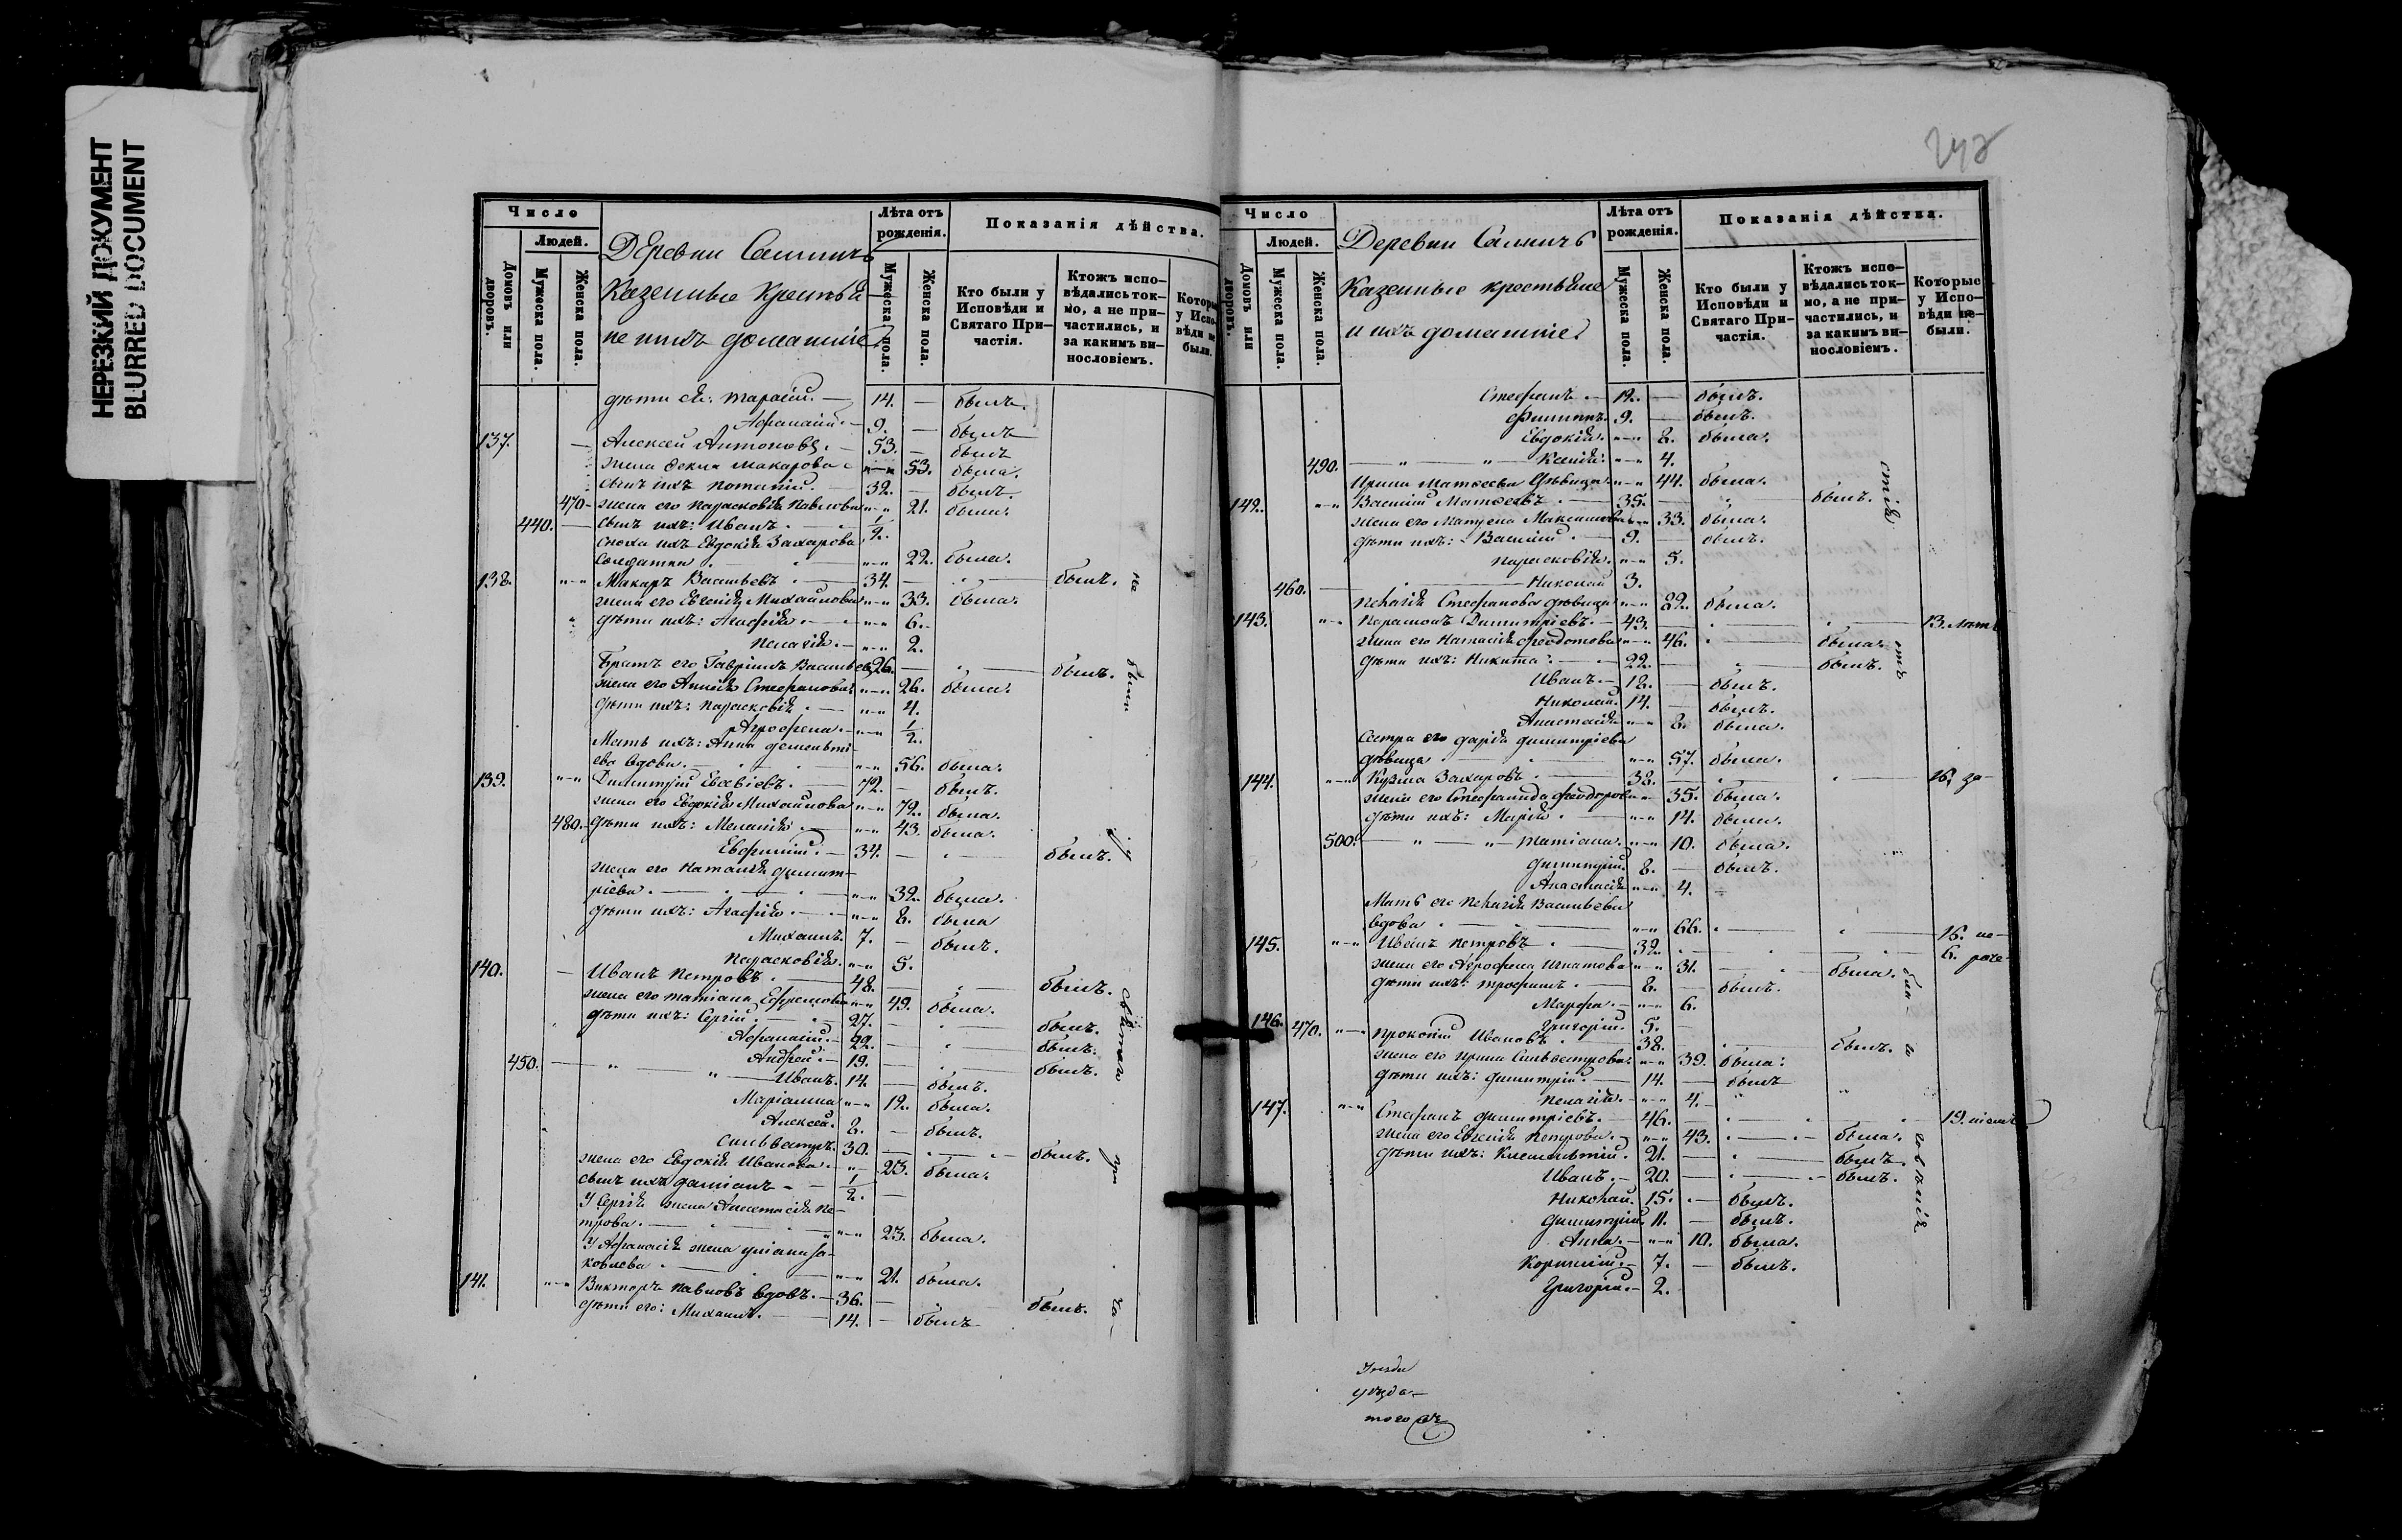 НЕРЕЗКИЙ ДОКУМЕНТ
BLURRED DOCUMENT
Число
Людей.
Домовъ или дворовъ.
Мужеска пола.
Женска пола.
Деревни
Казенные крестья-
не и ихъ домашніе
Лѣта отъ рожденія.
Мужеска пола.
Женска пола.
Показанія дѣйства.
Кто были у Исповѣди и Святаго При-частія.
Ктожъ испо-вѣдались ток-мо, а не при-частились, и за какимъ ви-нословіемъ.
Которые у Испо-вѣди не были.
дѣти ея: Тарасій. 14. — былъ.
Афанасій. 9. — былъ
137. — Алексей Антоновъ. 53. — былъ
жена Фекла Макарова 53. была.
сынъ ихъ Потапій. 32. — былъ.
470 жена его Парасковія Павлова 21. была.
440. — сынъ ихъ: Иванъ. 1/2.
сноха ихъ Евдокія Захарова
солдатка 22. была.
138. Макаръ Васильевъ 34. — былъ.
не
жена его Евгенія Михайлова 33. была.
дѣти ихъ: Агафія 6.
Пелагія. 2.
Братъ его Гавріилъ Васильевъ 26. — былъ.
были
жена его Анисія Стефанова 26. была.
дѣти ихъ: Парасковія 4.
Агрофена. 1/2.
Мать ихъ: Анна Дементі-
ева вдова. 56. была.
139. Димитрій Евсѣвіевъ. 72. — былъ.
жена его Евдокія Михайлова 72. была.
480. дѣти ихъ: Меланія 43. была.
Евфимій. 34. — былъ.
у
жена его Наталія Димит-
ріева. 32. была.
дѣти ихъ: Агафія. 8. была
Михаилъ. 7. — былъ.
Парасковія. 5.
140. — Иванъ Петровъ 48. — былъ.
святаго
жена его Татіана Ефремова 49. была.
дѣти ихъ: Сергій. 27. — былъ.
Афанасій. 22. — былъ.
450. — Андрей 19. — былъ.
Иванъ. 14. — былъ.
Маріамна 12. была.
Алексей. 8. — былъ.
Сильвестръ. 30. — былъ.
при
жена его Евдокія Иванова 23. была.
сынъ ихъ Даміанъ 1/2. —
У Сергія жена Анастасія Пе-
трова. 23. была.
У Афанасія жена Уліана Я-
ковлева 21. была.
141. Викторъ Павловъ вдовъ. 36. — былъ.
ча-
дѣти его: Михаилъ. 14. — былъ
Число
Людей.
Домовъ или дворовъ.
Мужеска пола.
Женска пола.
Деревни
Казенные крестьяне
и ихъ домашніе
Лѣта отъ рожденія.
Мужеска пола.
Женска пола.
Показанія дѣйства.
Кто были у Исповѣди и Святаго При-частія.
Ктожъ испо-вѣдались ток-мо, а не при-частились, и за какимъ ви-нословіемъ.
Которые у Испо-вѣди не-были.
Стефанъ. 12. — былъ.
Филиппъ. 9. — былъ.
Евдокія. 8. была.
490. Ксенія. 4.
Ирина Матѳеева дѣвица 44. была.
стія
142. Василій Матѳеевъ 35. — былъ.
жена его Матрена Максимова 33. была.
дѣти ихъ: Василій. 9. — былъ.
Парасковія. 5.
460. — Николай 3.
Пелагія Стефанова дѣвица 22. была.
143. Парамонъ Димитріевъ. 43. — 13. лѣтъ
жена его Наталія Феодотова 46. — была.
отъ
дѣти ихъ: Никита. 22. — былъ.
Иванъ. 18. — былъ.
Николай. 14. — былъ.
Анастасія 8. была.
Сестра его Дарія Димитріева
дѣвица 57. была.
144. Кузма Захаровъ 38. — 16, за-
жена его Стефанида Феодорова 35. была.
дѣти ихъ: Марія. 14. была.
500. Татіана. 10. была.
Димитрій. 8. — былъ.
Анастасія 4.
Мать его Пелагія Васильева
вдова 66. — 16. не-
145. Иванъ Петровъ 32. — 6. раче-
жена его Агрофена Игнатова 31. — была.
дѣти ихъ: Трофимъ. 8. — былъ.
Марфа. 6.
470. Григорій. 5. —
146. Прокопій Ивановъ 38. — былъ.
жена его Ирина Сильвестрова 39. была.
дѣти ихъ: Димитрій. 14. — былъ
Пелагія. 4.
147. Стефанъ Димитріевъ. 46. — 19. ніемъ
жена его Евгенія Петрова. 43. — была.
дѣти ихъ: Климентій. 21. — былъ.
Иванъ. 20. — былъ.
Николай. 15. — былъ.
Димитрій. 11. — былъ.
Анна. 10. была.
Корнилій. 7. — былъ.
Григорій. 2.
того